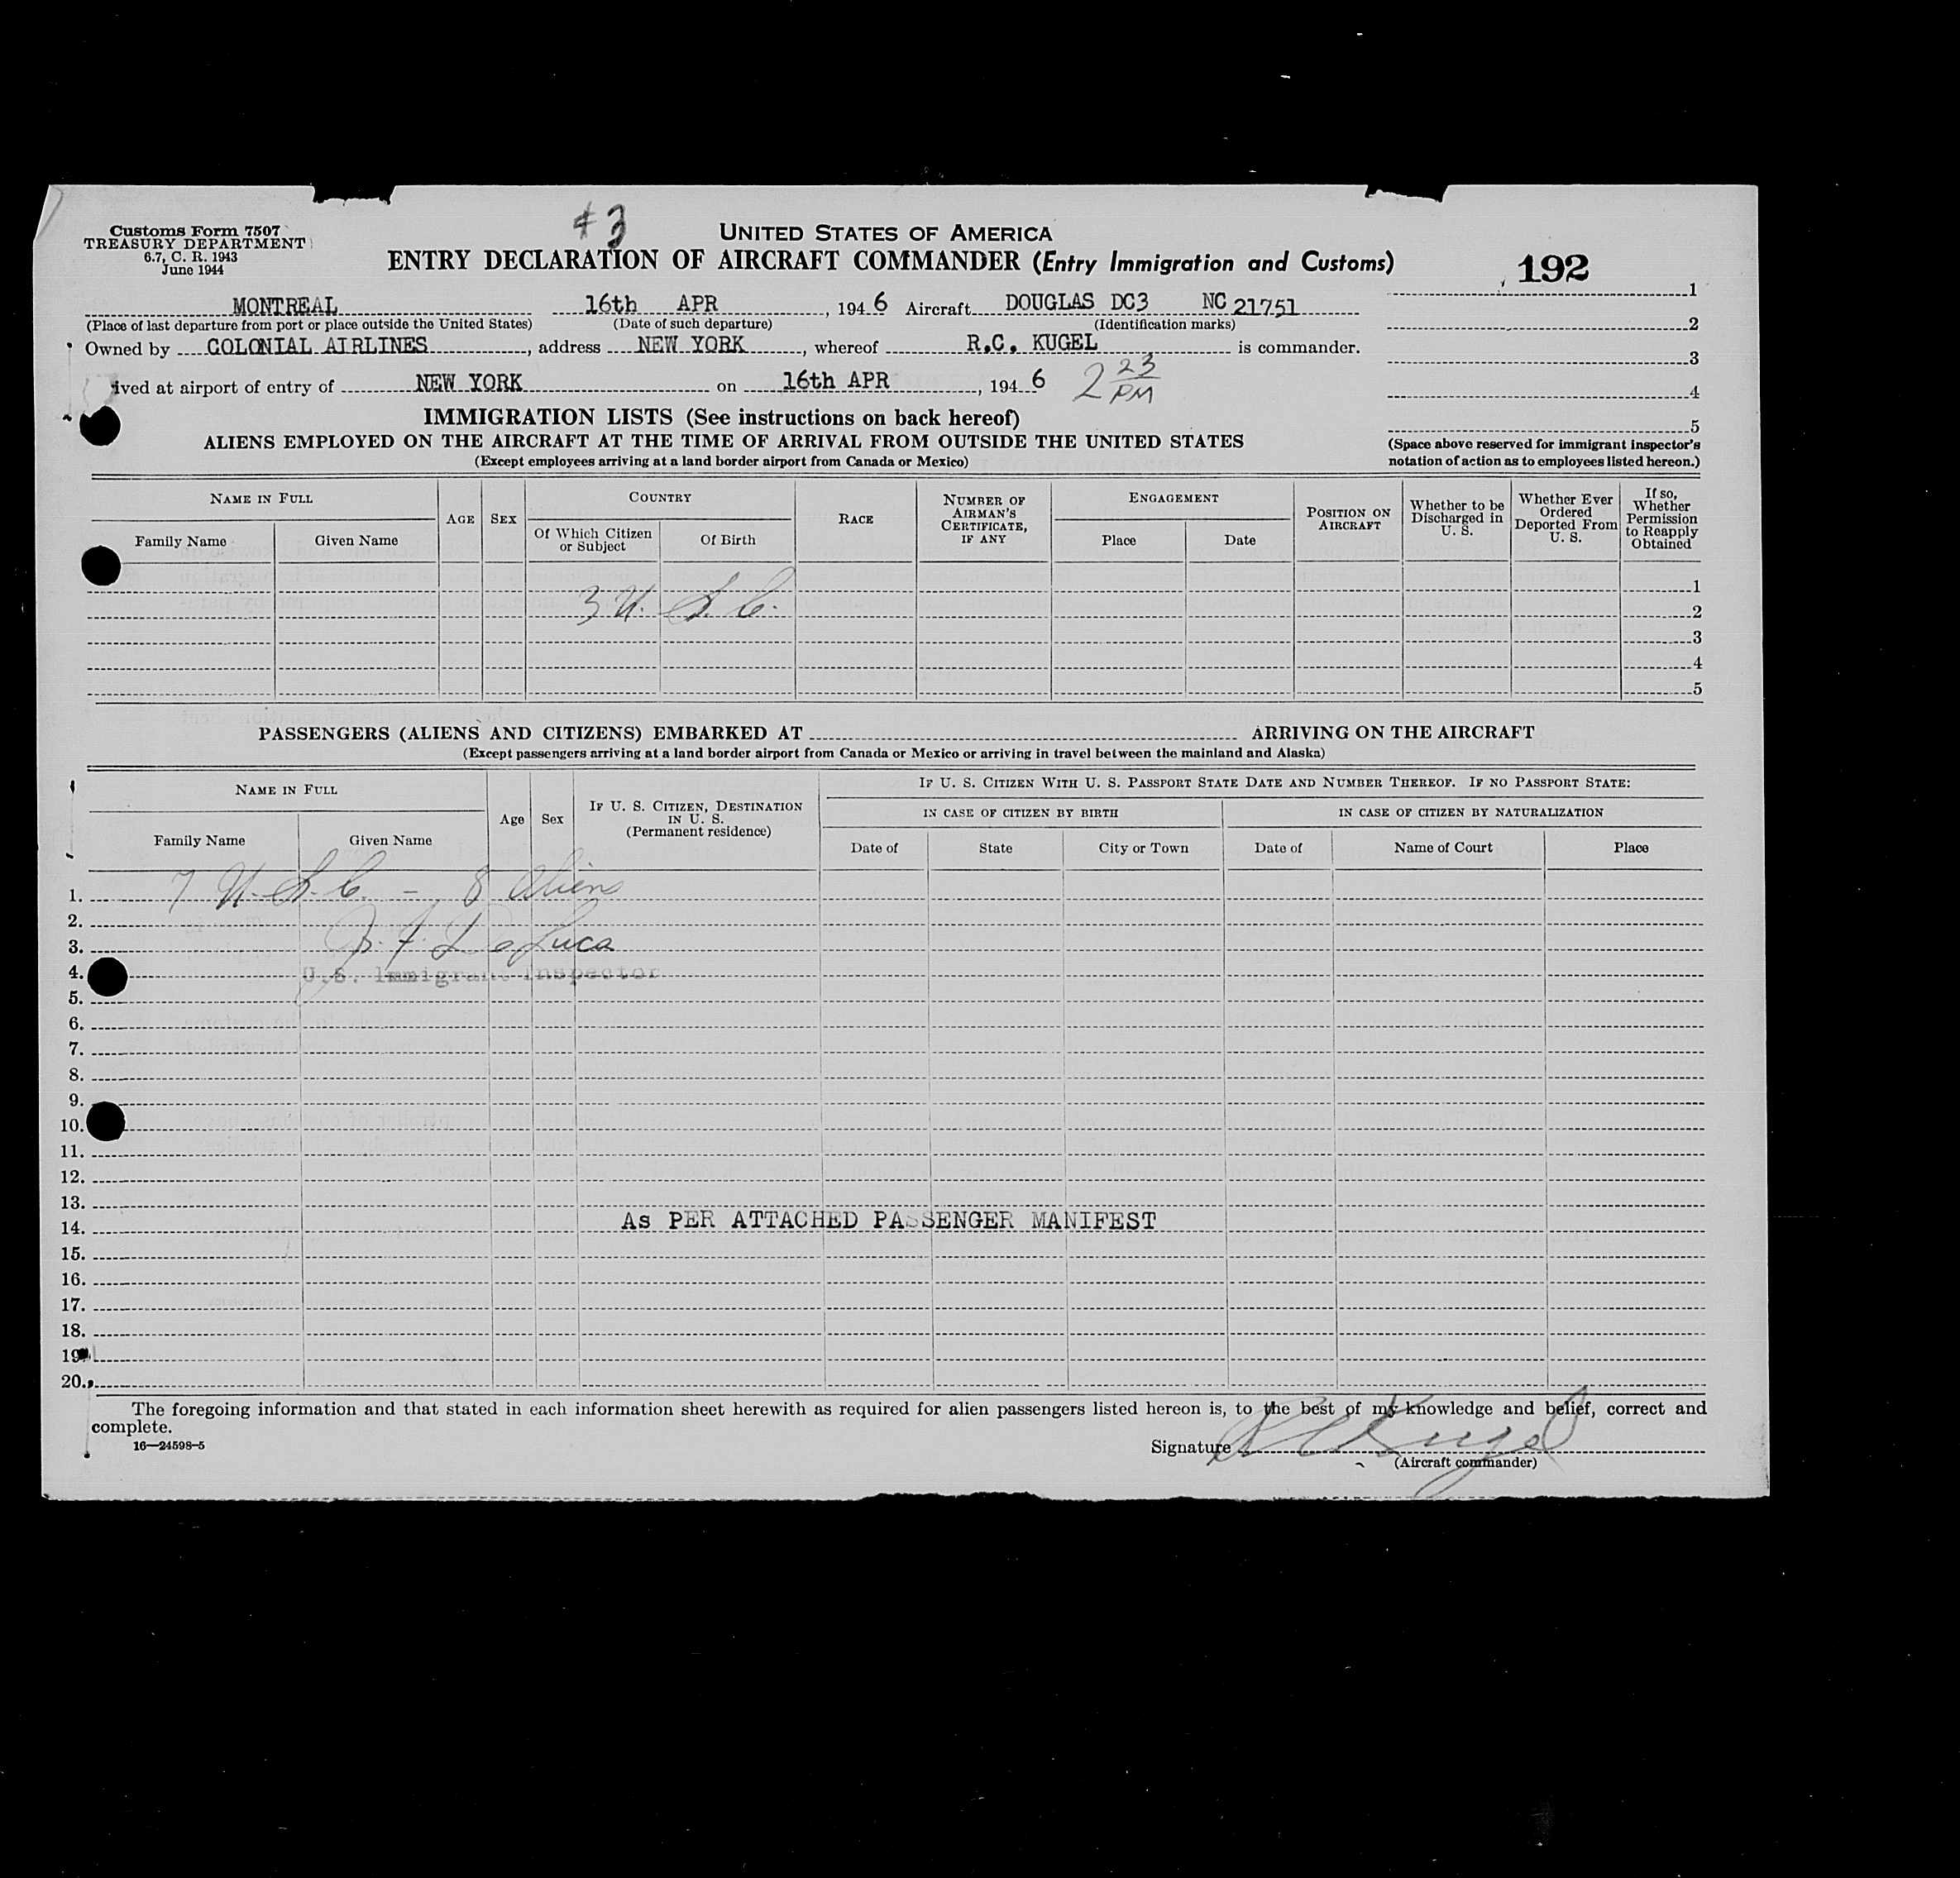 Customs Form 7507
TREASURY DEPARTMENT
6.7, C. R. 1943
June 1944
#3
UNITED STATES OF AMERICA
ENTRY DECLARATION OF AIRCRAFT COMMANDER (Entry Immigration and Customs)
192
MONTREAL 16th APR, 1946 Aircraft DOUGLAS DC3 NC 21751
(Place of last departure from port or place outside the United States) (Date of such departure) (Identification marks)
Owned by COLONIAL AIRLINES, address NEW YORK, whereof R.C. KUGEL is commander.
ived at airport of entry of NEW YORK on 16th APR, 1946 2 23 PM
1
2
3
4
5
(Space above reserved for immigrant inspector's
notation of action as to employees listed hereon.)
IMMIGRATION LISTS (See instructions on back hereof)
ALIENS EMPLOYED ON THE AIRCRAFT AT THE TIME OF ARRIVAL FROM OUTSIDE THE UNITED STATES
(Except employees arriving at a land border airport from Canada or Mexico)
NAME IN FULL
Family Name
Given Name
AGE
SEX
COUNTRY
Of Which Citizen or Subject
Of Birth
RACE
NUMBER OF AIRMAN'S CERTIFICATE, IF ANY
ENGAGEMENT
Place
Date
POSITION ON AIRCRAFT
Whether to be Discharged in U. S.
Whether Ever Ordered Deported From U. S.
If so, Whether Permission to Reapply Obtained
1
3 U. S. C. 2
3
4
5
PASSENGERS (ALIENS AND CITIZENS) EMBARKED AT ARRIVING ON THE AIRCRAFT
(Except passengers arriving at a land border airport from Canada or Mexico or arriving in travel between the mainland and Alaska)
NAME IN FULL
Family Name
Given Name
Age
Sex
IF U. S. CITIZEN, DESTINATION IN U. S. (Permanent residence)
IF U. S. CITIZEN WITH U. S. PASSPORT STATE DATE AND NUMBER THEREOF. IF NO PASSPORT STATE:
IN CASE OF CITIZEN BY BIRTH
IN CASE OF CITIZEN BY NATURALIZATION
Date of
State
City or Town
Date of
Name of Court
Place
1. 7 U.S.C. - 8 Aliens
2.
3. DeLuca
4. U.S. Immigrant Inspector
5.
6.
7.
8.
9.
10.
11.
12.
13.
14. As PER ATTACHED PASSENGER MANIFEST
15.
16.
17.
18.
19.
20.
The foregoing information and that stated in each information sheet herewith as required for alien passengers listed hereon is, to the best of my knowledge and belief, correct and
complete.
16—24598-5
Signature R C Kugel
(Aircraft commander)